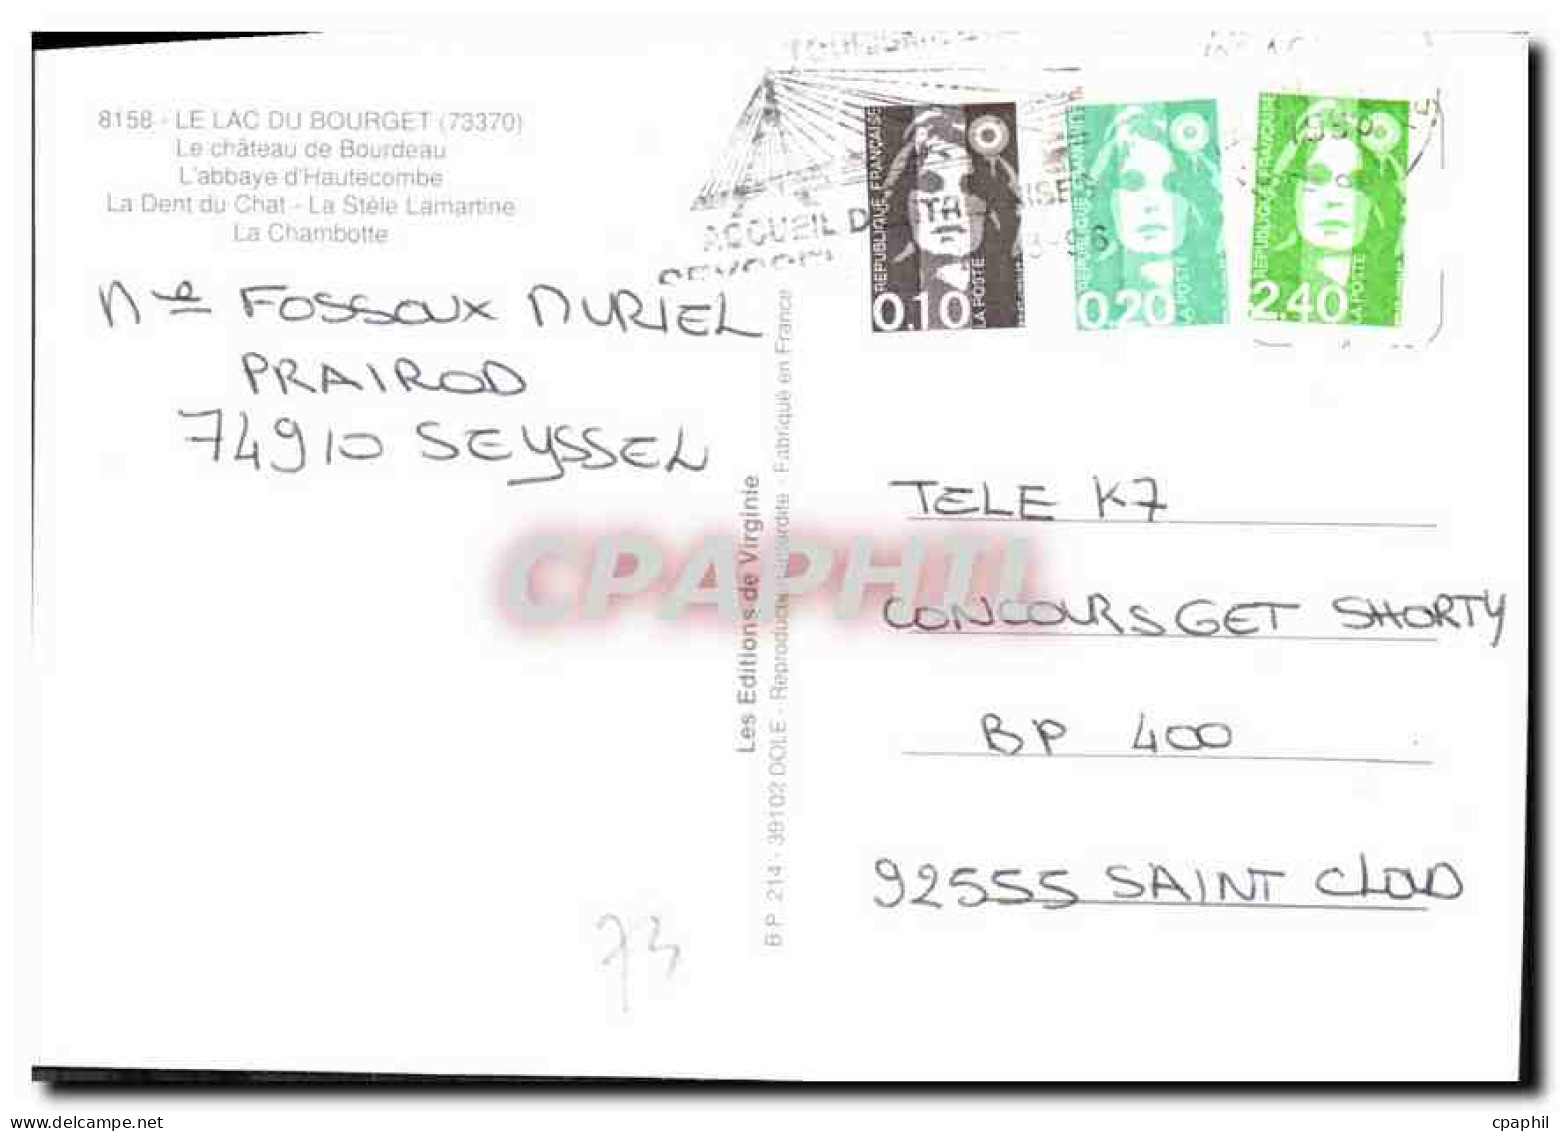 8158 - LE LAC DU BOURGET (73370)
Le château de Bourdeau
L'abbaye d'Hautecombe
La Dent du Chat - La Stèle Lamartine
La Chambotte
Mle Fossoux MURIEL
PRAIROD
74910 SEYSSEL
Les Editions de Virginie
B.P. 214 - 39102 DOLE - Reproduction interdite - Fabriqué en France
ACCUEIL
REPUBLIQUE FRANÇAISE
0,10
LA POSTE
REPUBLIQUE FRANÇAISE
0,20
LA POSTE
REPUBLIQUE FRANÇAISE
2,40
LA POSTE
TELE K7
CONCOURS GET SHORTY
BP 400
92555 SAINT CLOUD
73
CPAPHIL
www.delcampe.net
cpaphil